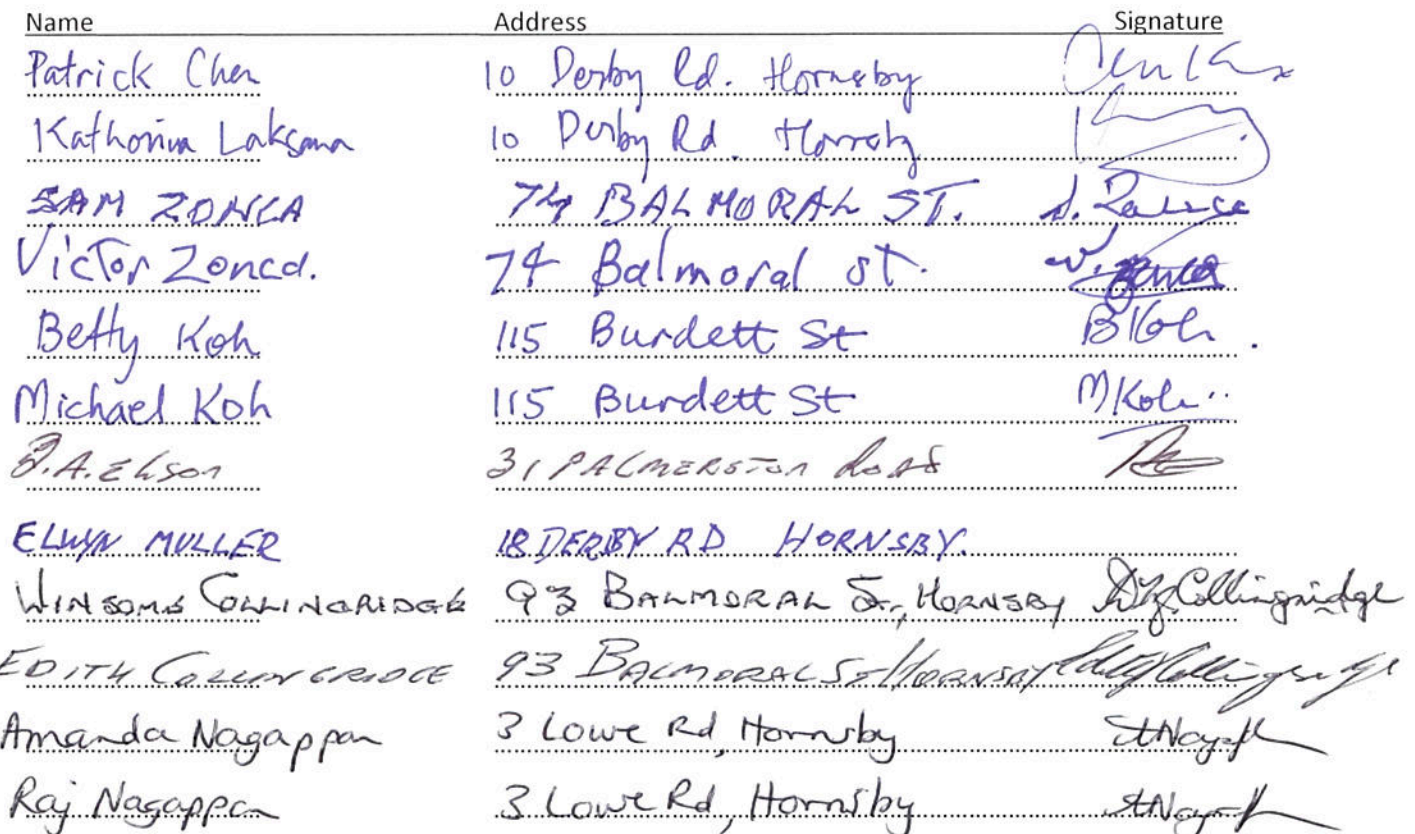 Name Address Signature
Patrick Chen 10 Derby Rd. Hornsby
Laksana 10 Derby Rd.
SAM ZONCA 74 BALMORAL ST.
Victor Zonca. 74 Balmoral st.
Betty Koh 115 Burdett St B Koh.
Michael Koh 115 Burdett St M Koh..
31 PALMERSTON ROAD
ELWYN MULLER 18 DERBY RD HORNSBY.
WINSOME COLLINGRIDGE 93 BALMORAL ST., HORNSBY Collingridge
EDITH COLLINGRIDGE 93 BALMORAL ST HORNSBY Collingridge
Amanda Nagappan 3 Lowe Rd, Hornsby
Raj Nagappan 3 Lowe Rd, Hornsby